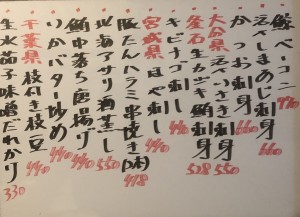 鯨ベーコン 770
活〆しまあじ刺身 660
かつお刺身 660
大分県 活〆いさき刺身 550
釜石生カツオ 鮫刺身 528
キビナゴ刺し 440
宮城県 ほや刺し
豚たんハラミ串焼き(2本) 478
北海アサリ酒蒸し 550
鮪中落ち唐揚げ 440
いかバター炒め 440
千葉県 枝付き枝豆 440
生水茄子味噌だれかけ 330